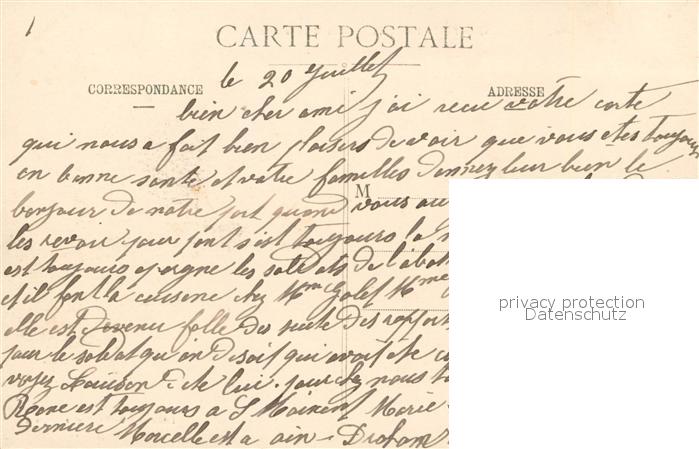 1
CARTE POSTALE
CORRESPONDANCE
ADRESSE
le 20 Juillet
bien cher ami j'ai recu votre carte
qui nous a fait bien plaisirs de voir que vous etes toujours
en bonne sante et votre familles donnez leur bien le
M
bonjour de notre part quand vous au
les revoir pour
toujours la
est toujours les soldats de l'
et il font la cuisine chez Mme Mme
elle est devenu folle des suite des
pour le soldat qu on disait qui avait ete
voyez de lui. pour chez nous
est toujours a St Maixent Marie
derniere Marcelle est a
privacy protection
Datenschutz